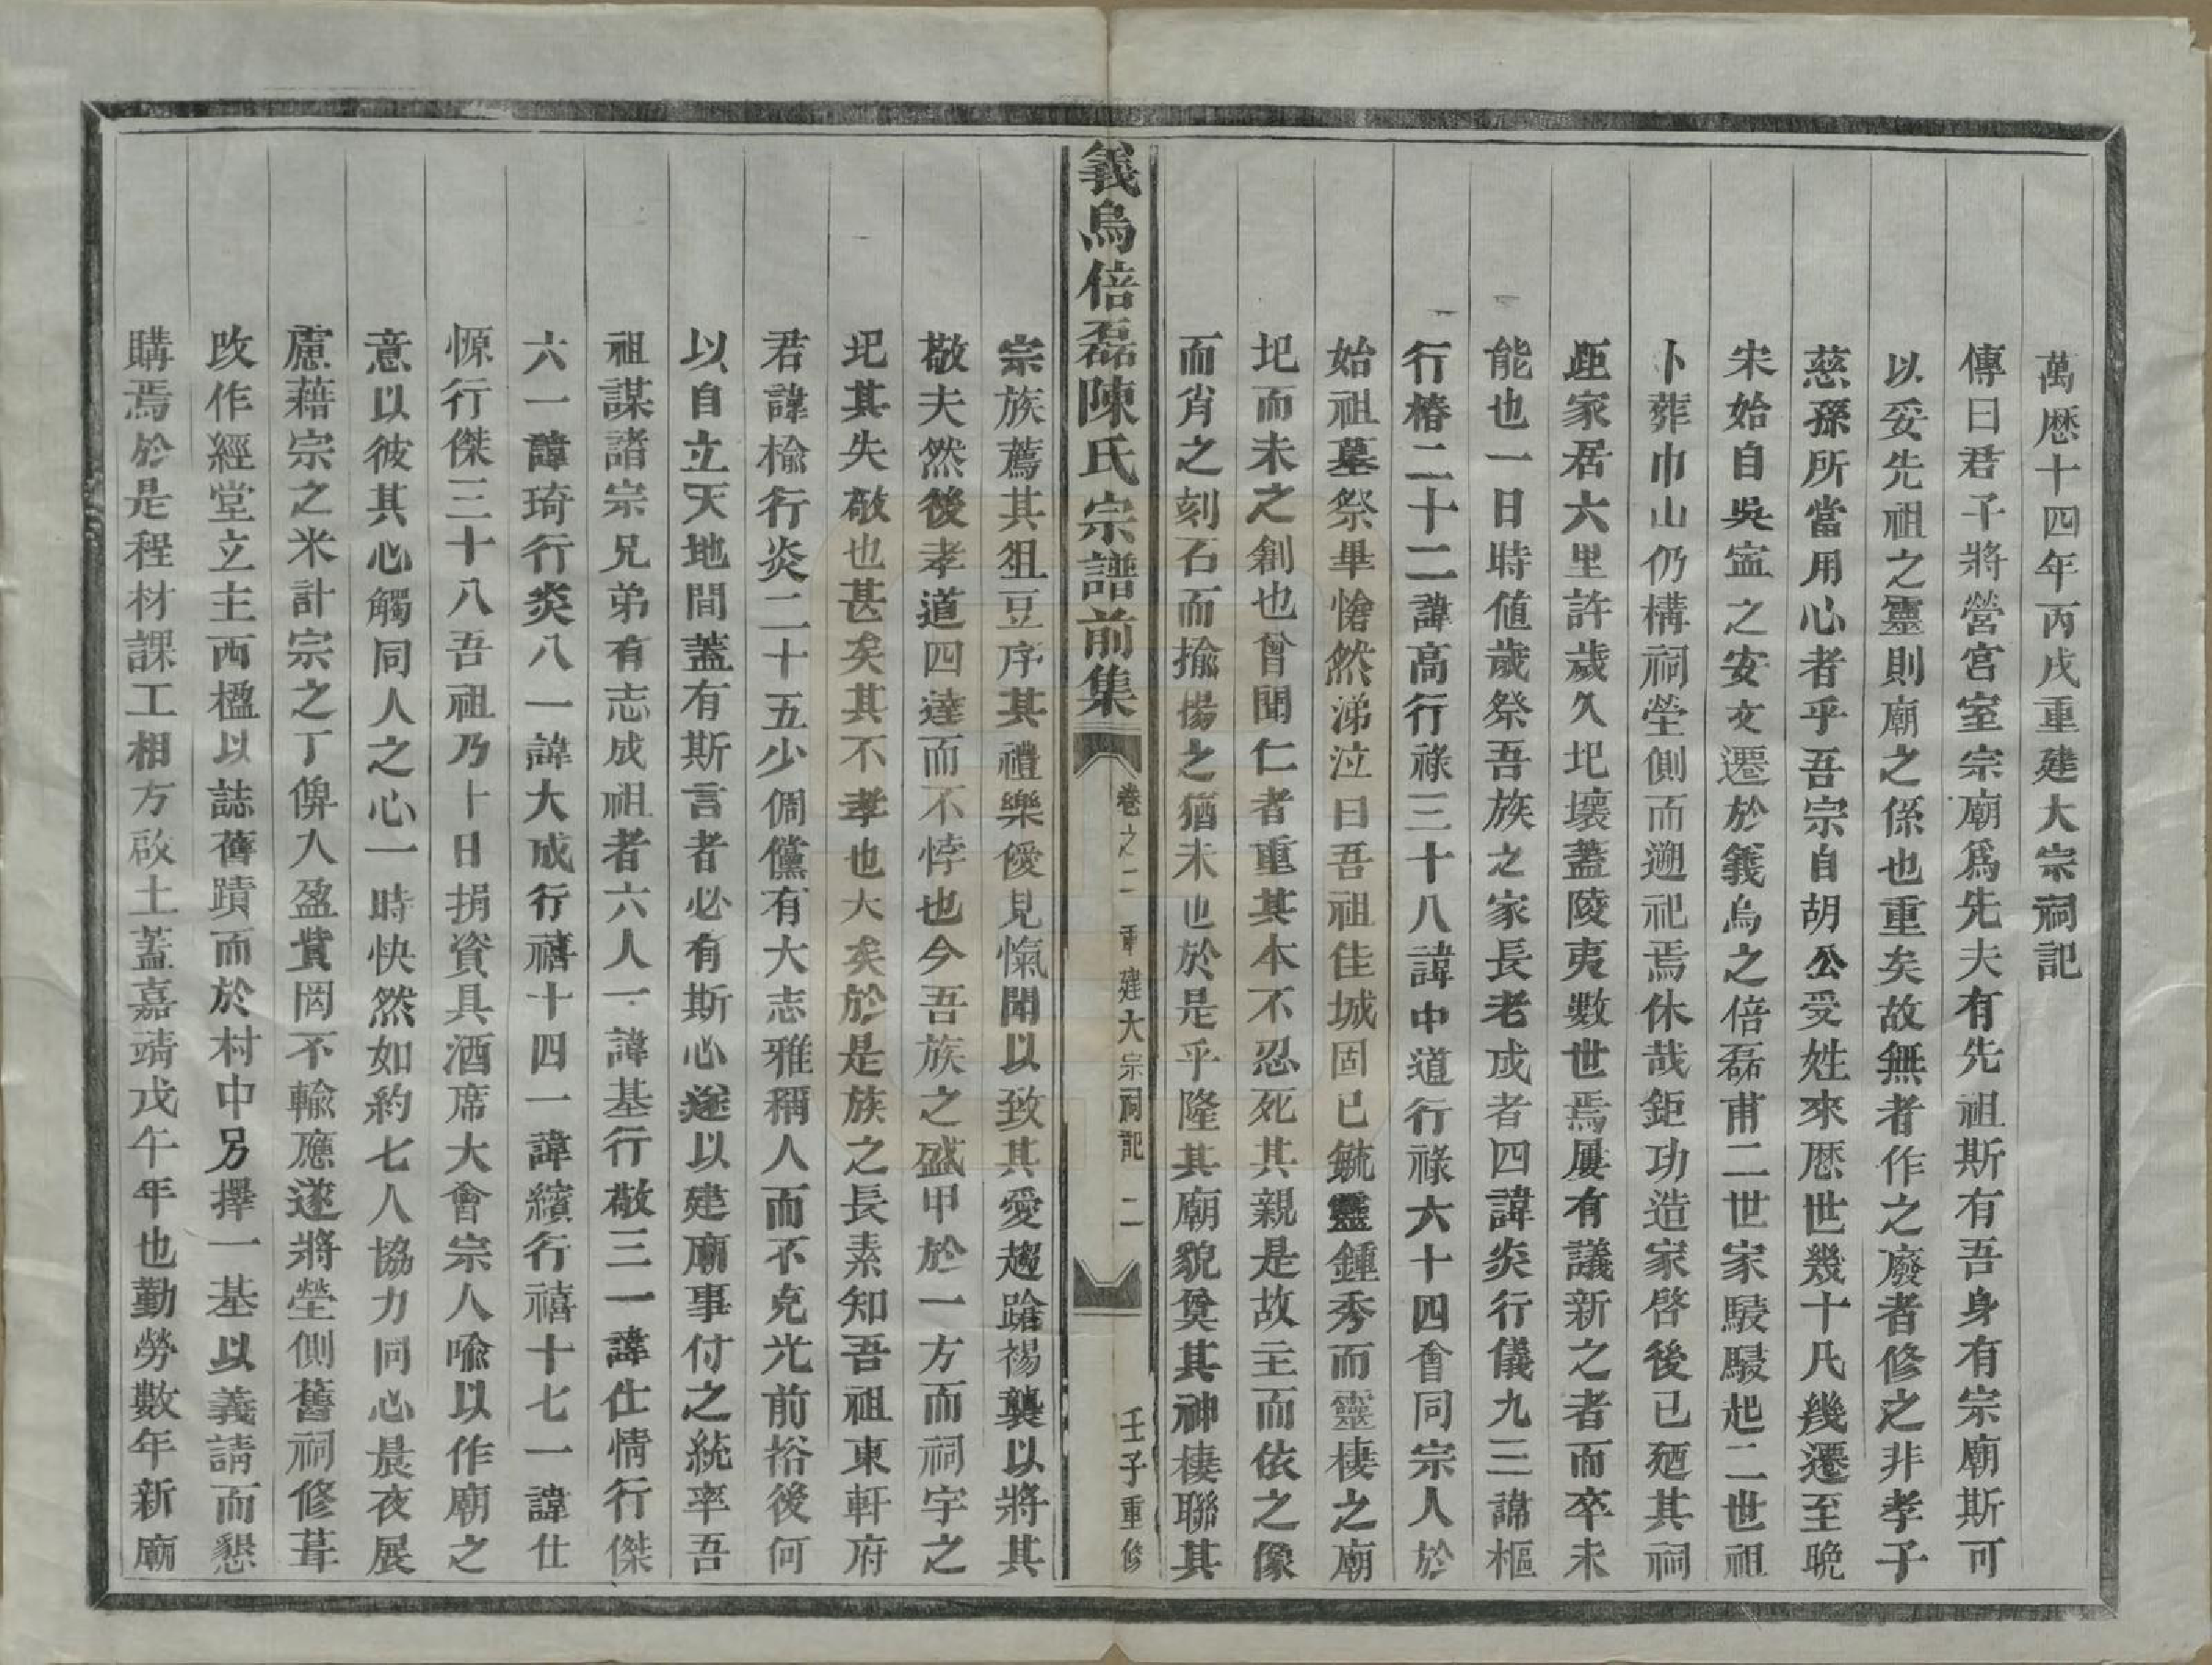 萬歷十四年丙戌重建大宗祠記
傳曰君子將營宮室宗廟爲先夫有先祖斯有吾身有宗廟斯可
以妥先祖之靈則廟之係也重矣故無者作之廢者修之非孝子
慈孫所當用心者乎吾宗自胡公受姓來歷世幾十凡幾遷至晚
宋始自吳寧之安文遷於義烏之倍磊甫二世家駸駸起二世祖
卜葬巾山仍構祠塋側而遡祀焉休哉鉅功造家啓後已廼其祠
距家居六里許歲久圮壞蓋陵夷數世焉屢有議新之者而卒未
能也一日時値歲祭吾族之家長老成者四諱炎行儀九三諱樞
行椿二十二諱高行祿三十八諱中道行祿六十四會同宗人於
始祖墓祭畢愴然涕泣曰吾祖佳城固已毓靈鍾秀而靈棲之廟
圮而未之創也曾聞仁者重其本不忍死其親是故主而依之像
而肖之刻石而揄揚之猶未也於是乎隆其廟貌奠其神棲聯其
義烏倍磊陳氏宗譜前集 卷之二 重建大宗祠記 二 壬子重修
宗族薦其俎豆序其禮樂優見愾聞以致其愛趨蹌裼襲以將其
敬夫然後孝道四達而不悖也今吾族之盛甲於一方而祠宇之
圯其失敬也甚矣其不孝也大矣於是族之長素知吾祖東軒府
君諱棆行炎二十五少倜儻有大志雅稱人而不克光前裕後何
以自立天地間蓋有斯言者必有斯心遂以建廟事付之統率吾
祖謀諸宗兄弟有志成祖者六人一諱基行敬三一諱仕情行傑
六一諱琦行炎八一諱大成行禧十四一諱繽行禧十七一諱仕
愿行傑三十八吾祖乃卜日捐資具酒席大會宗人喩以作廟之
意以彼其心觸同人之心一時快然如約七人協力同心晨夜展
慮藉宗之米計宗之丁俾入盈貲罔不輸應遂將塋側舊祠修葺
改作經堂立主西楹以誌舊蹟而於村中另擇一基以義請而懇
購焉於是程材課工相方啟土蓋嘉靖戊午年也勤勞數年新廟